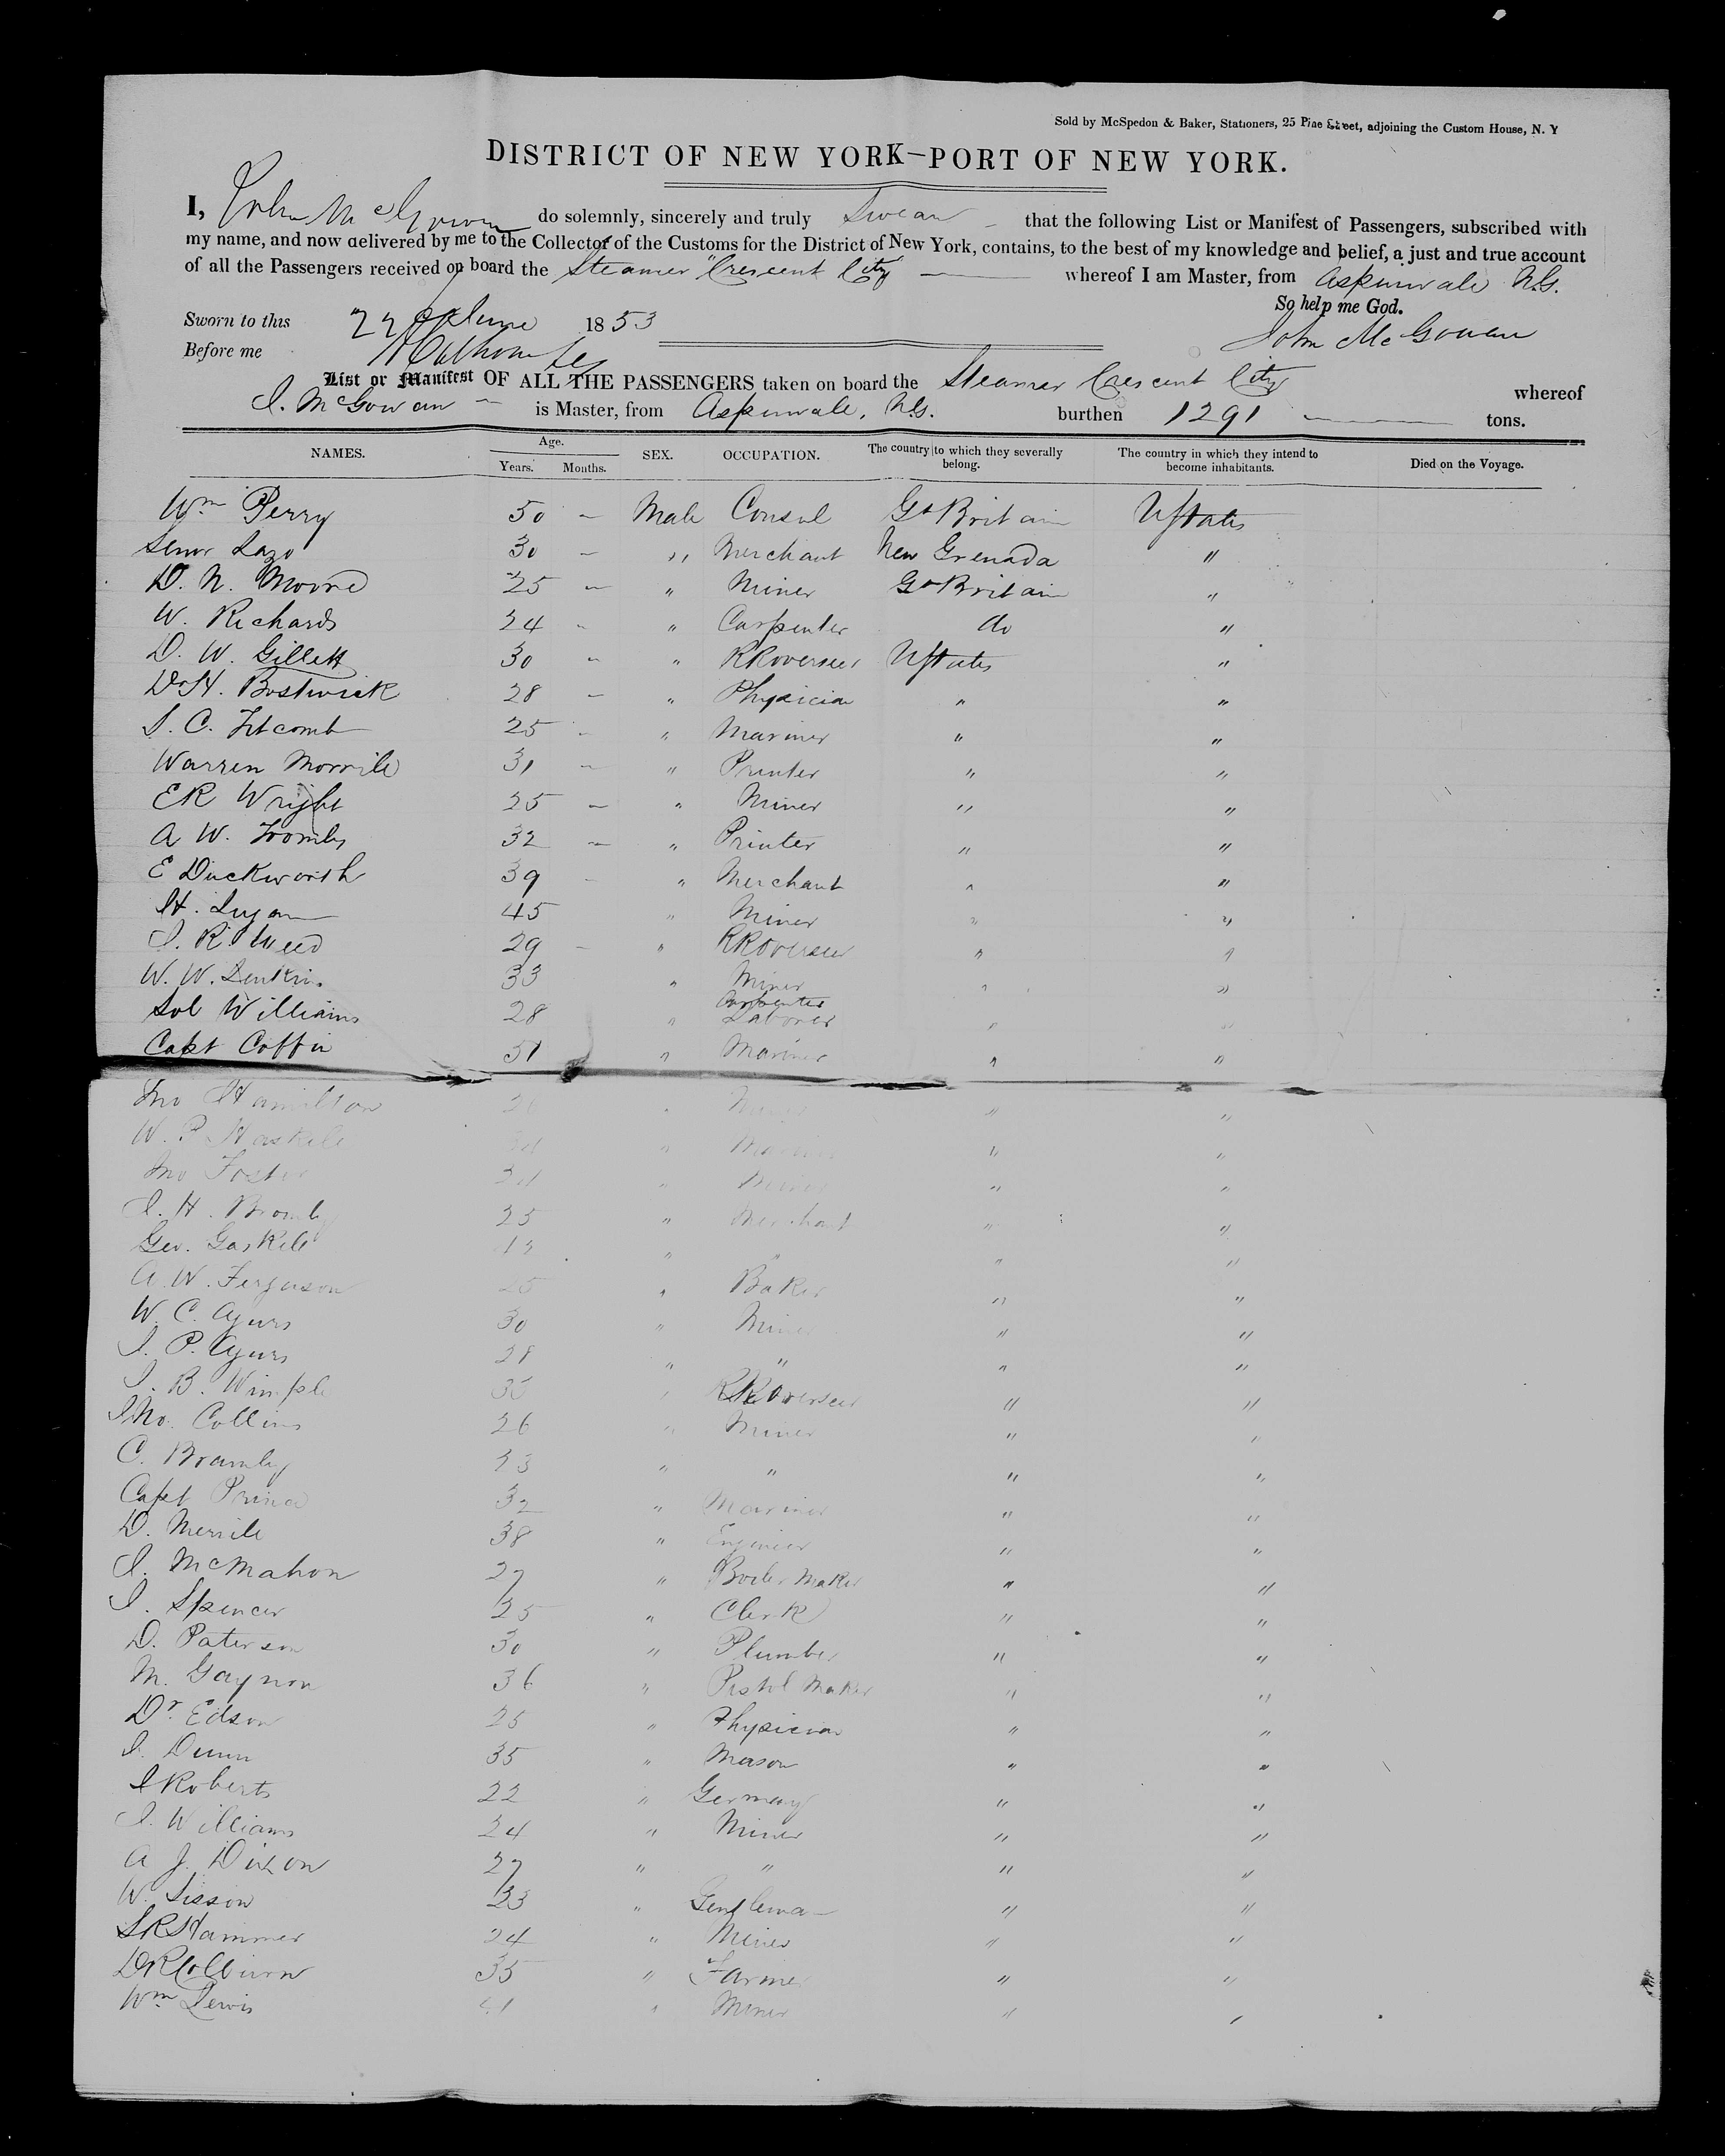 Sold by McSpedon & Baker, Stationers, 25 Pine Street, adjoining the Custom House, N. Y
DISTRICT OF NEW YORK—PORT OF NEW YORK.
I, John McGowan do solemnly, sincerely and truly Swear that the following List or Manifest of Passengers, subscribed with
my name, and now delivered by me to the Collector of the Customs for the District of New York, contains, to the best of my knowledge and belief, a just and true account
of all the Passengers received on board the Steamer "Crescent City whereof I am Master, from Aspinwale N.G.
So help me God.
Sworn to this 22 June 1853 John McGowan
Before me
List or Manifest OF ALL THE PASSENGERS taken on board the Steamer Crescent City whereof
J. McGowan is Master, from Aspinwale, N.G. burthen 1291 tons.
NAMES. Age. Years. Months. SEX. OCCUPATION. The country to which they severally belong. The country in which they intend to become inhabitants. Died on the Voyage.
Wm Perry 50 — Male Consul Gt Britain UStates
Senor Lazo 30 — " Merchant New Grenada "
D. N. Moore 25 — " Miner Gt Britain "
W. Richards 24 " " Carpenter do "
D. W. Gillett 30 " " RRoverseer UStates "
Dr H. Bostwick 28 — " Physician " "
S. C. Titcomb 25 - " Mariner " "
Warren Morrile 31 — " Printer " "
E R Wright 25 — " Miner " "
A W. Toombs 32 — " Printer " "
E Duckworth 39 — " Merchant " "
H. 45 " Miner " "
J. R. Weed 29 — " RROverseer " "
W. W. Jenkins 33 " Miner " "
Sol Williams 28 " Carpenter Laborer " "
Capt Coffin 51 " Mariner " "
Jno Hamilton 26 " Miner " "
W. P. Haskele " " "
Jno Foster " Miner " "
J. H. Bromly 25 " Merchant " "
Geo. Gaskile " " " "
A. W. Ferguson 25 " Baker " "
W. C. Ayurs 30 " Miner " "
J. P. Ayurs 28 " " " "
J. B. Wimple " RROverseer " "
Jno. Collins 26 " Miner " "
C. Bramly 23 " " " "
Capt Prince 32 " Mariner " "
D. Merrile 38 " Engineer " "
J. McMahon 27 " Boiler Maker " "
J. Spencer 25 " Clerk " "
D. Paterson 30 " Plumber " "
M. Gaynon 36 " Pistol Maker " "
Dr. Edson 25 " Physician " "
J. Dunn 35 " Mason " "
J Roberts 22 " Germany " "
J. Williams 24 " Miner " "
A J. Dixon 27 " " " "
W. Sisson 23 " Gentleman " "
S R Hammer 24 " Miner " "
D R Colburn 35 " Farmer " "
Wm Lewis 41 " Miner " "